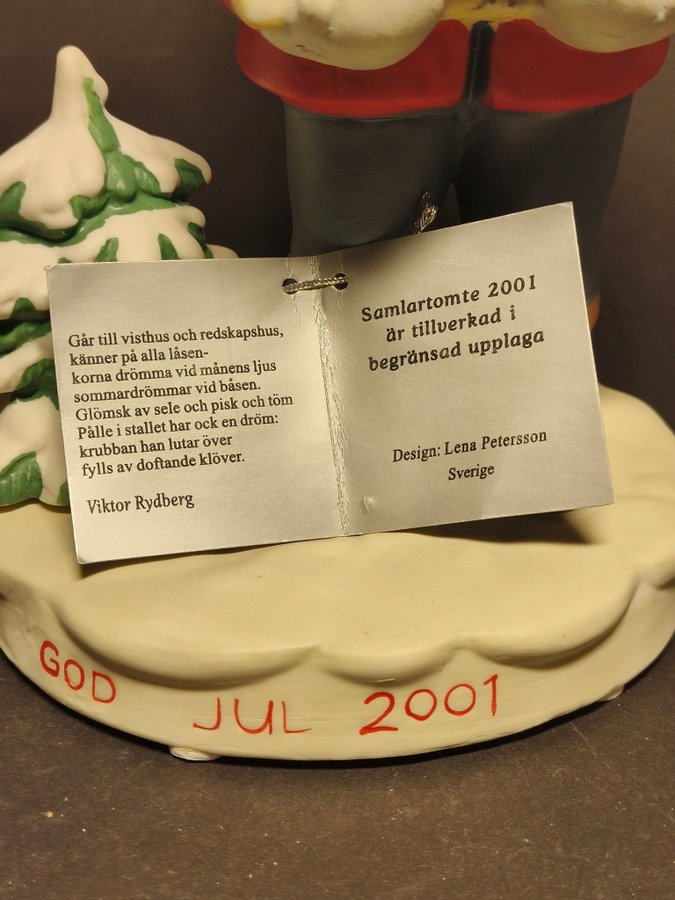 Går till visthus och redskapshus,
känner på alla låsen-
korna drömma vid månens ljus
sommardrömmar vid båsen.
Glömsk av sele och pisk och töm
Pålle i stallet har ock en dröm:
krubban han lutar över
fylls av doftande klöver.
Viktor Rydberg
Samlartomte 2001
är tillverkad i
begränsad upplaga
Design: Lena Petersson
Sverige
GOD JUL 2001